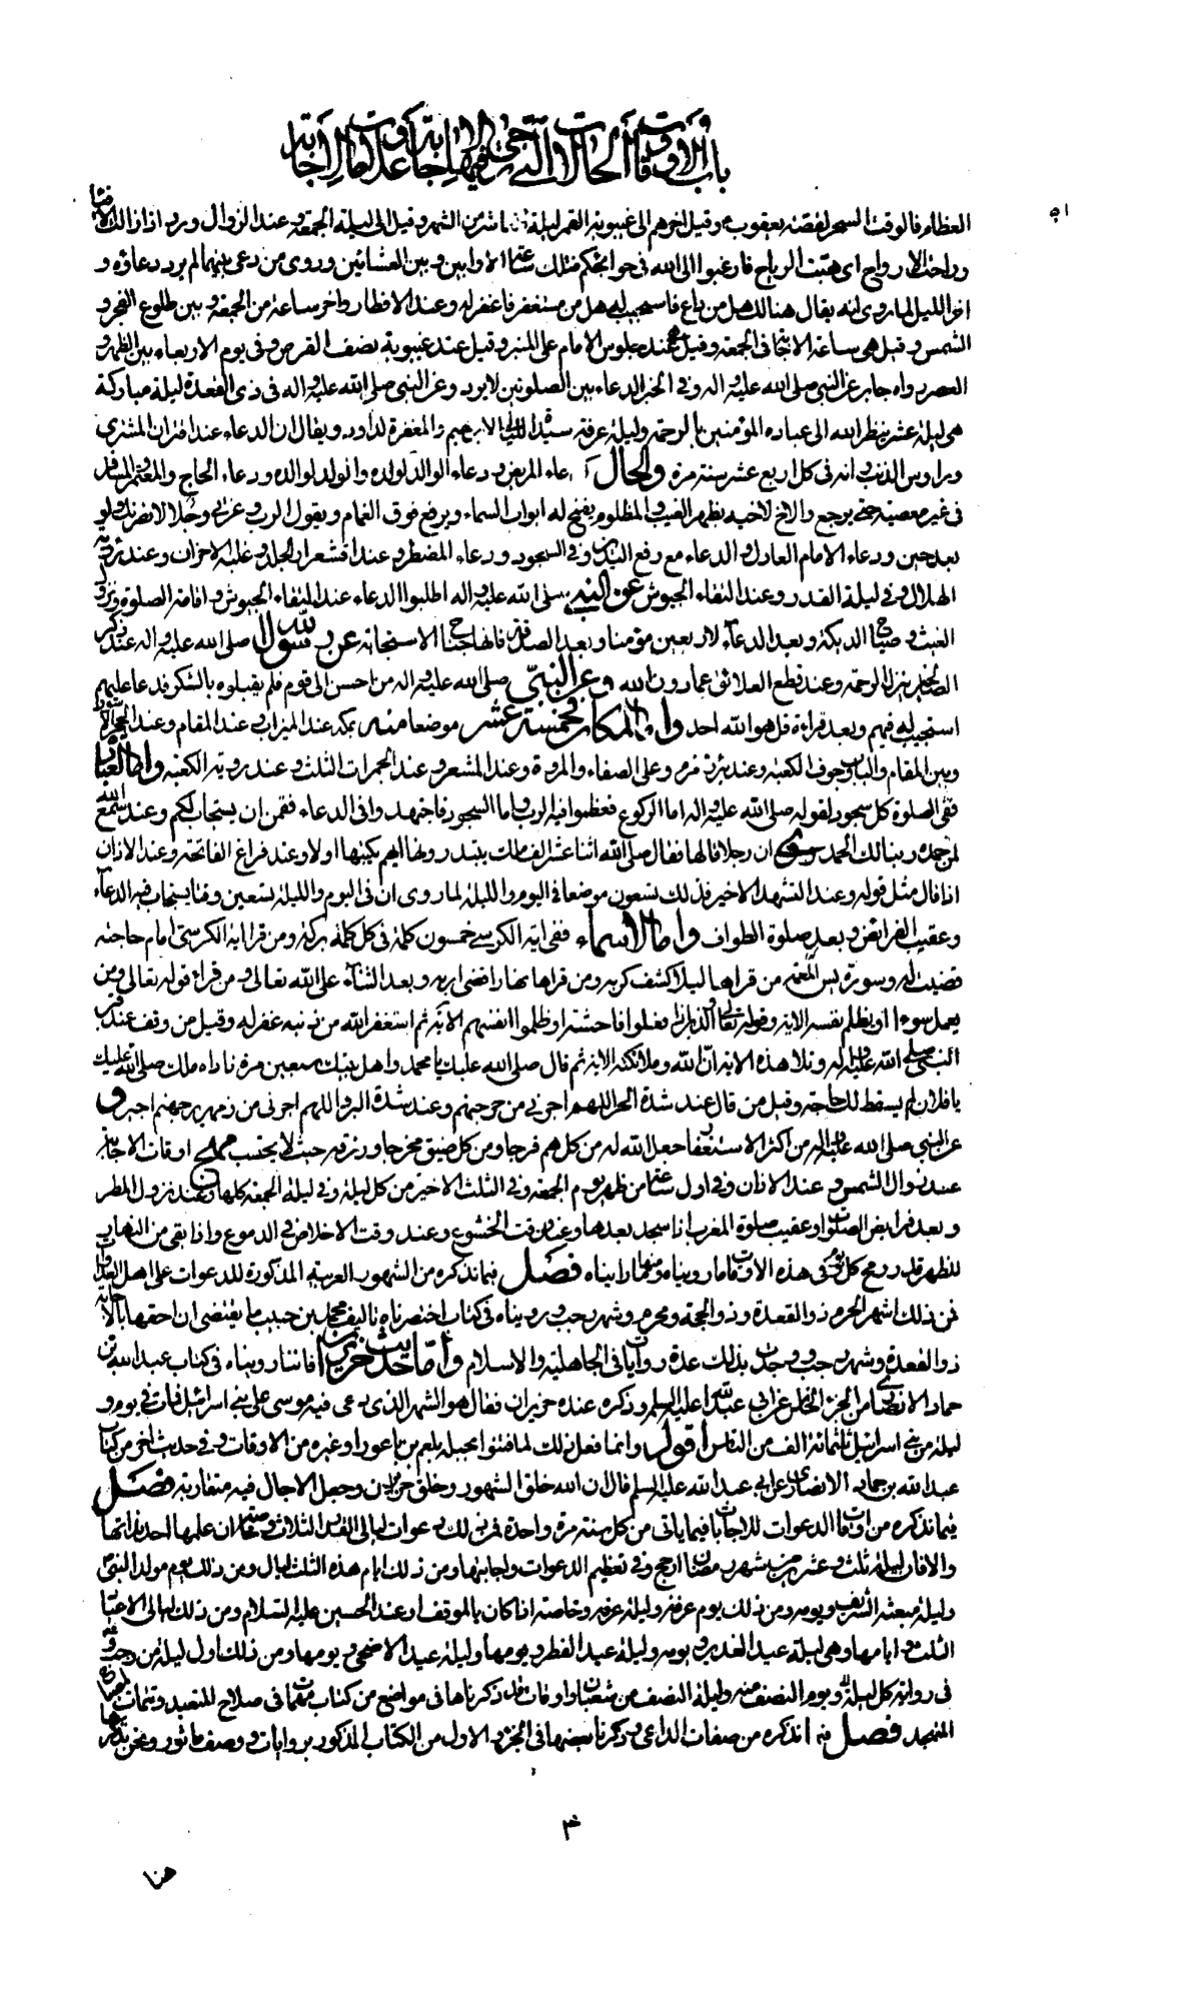 باب الاوقات والحالات التي يرجى فيها الاجابة وعلامات الاجابة
اه
العظام فالوقت السحر لقصة يعقوب وقيل اخرهم الى غيبوبة القمر ليلة من الشهر وقيل الى ليلة الجمعة وعند الزوال ورد اذا زالت الافياء
وراحت الارواح اى هبت الرياح فارغبوا الى الله فى حوائجكم فتلك ساعة الاوابين وبين العشائين وروى من دعى بينهما لم يرد دعاؤه و
اخر الليل لما روى انه يقال هنالك هل من داع فاستجيب له هل من مستغفر فاغفر له وعند الافطار واخر ساعة من الجمعة وبين طلوع الفجر و
الشمس وقيل هى ساعة الاجابة فى الجمعة وقيل عند جلوس الامام على المنبر وقيل عند غيبوبة نصف القرص وفى يوم الاربعاء بين الظهر و
العصر رواه جابر عن النبى صلى الله عليه واله وفى الخبر الدعاء بين الصلوتين لا يرد وعن النبى صلى الله عليه واله فى ذى القعدة ليلة مباركة
هى ليلة عشر ينظر الله الى عباده المؤمنين بالرحمة وليلة عرفة سيدة الليالى لابرهيم والمغفرة لداود ويقال ان الدعاء عند اقتران المشترى
وبراوس الذنب وانه فى كل اربع عشر سنة مرة والحال دعاء المريض ودعاء الوالد لولده والولد لوالده ودعاء الحاج والمعتمر والمسافر
فى غير معصية حتى يرجع والاخ لاخيه بظهر الغيب والمظلوم يفتح له ابواب السماء ويرفع فوق الغمام ويقول الرب وعزتى وجلالى لانصرنك ولو
بعد حين ودعاء الامام العادل والدعاء مع رفع اليدين وفى السجود ودعاء المضطر وعند اقشعرار الجلد وغلبة الاحزان وعند رؤية
الهلال وفى ليلة القدر وعند التقاء الجيوش عن النبى صلى الله عليه واله اطلبوا الدعاء عند التقاء الجيوش واقامة الصلوة ونزول
الغيث وصياح الديكة وبعد الدعاء لاربعين مؤمنا وبعد الصدقة فانها جناح الاستجابة عن رسول الله صلى الله عليه واله عند ذكر
الصالحين ينزل الرحمة وعند قطع العلائق عما دون الله وعن النبى صلى الله عليه واله من احسن الى قوم فلم يقبلوه بالشكر فدعا عليهم
استجيب له فيهم وبعد قراءة قل هو الله احد واما المكان فخمسة عشر موضعا منه بمكة عند الميزاب وعند المقام وعند الحجر الاسود
وبين المقام والباب وجوف الكعبة وعند بئر زمزم وعلى الصفا والمروة وعند المشعر وعند الجمرات الثلث وعند رؤية الكعبة واما العبادات
ففى الصلوة كل سجود لقوله صلى الله عليه واله اما الركوع فعظموا فيه الرب واما السجود فاجتهدوا فى الدعاء فقمن ان يستجاب لكم وعند سمع الله
لمن حمده ربنا لك الحمد روى ان رجلا قالها فقال صلى الله اثنا عشر الف ملك يبتدرونها ايهم يكتبها اولا وعند فراغ الفاتحة وعند الاذان
اذا قال مثل قوله وعند التشهد الاخير فذلك تسعون موضعا فى اليوم والليلة لما روى ان فى اليوم والليلة تسعين وقتا يستجاب فيه الدعاء
وعقيب الفرائض وبعد صلوة الطواف واما الاسماء ففى اية الكرسى خمسون كلمة فى كل كلمة بركة ومن قرا اية الكرسى امام حاجته
قضيت له وسورة يس المعمة من قراها ليلا كشف كربه ومن قراها نهارا قضى اربه وبعد الثناء على الله تعالى ومن قراء قوله تعالى ومن
يعمل سوءا او يظلم نفسه الاية وقوله تعالى والذين اذا فعلوا فاحشة او ظلموا انفسهم الاية ثم استغفر الله من ذنبه غفر له وقيل من وقف عند قبر
النبى صلى الله عليه واله وتلا هذه الاية ان الله وملائكته الاية ثم قال صلى الله عليك يا محمد واهل بيتك سبعين مرة ناداه ملك صلى الله عليك
يا فلان لم يسقط لك حاجة وقيل من قال عند شدة الحر اللهم اجرنى من حر جهنم وعند شدة البرد اللهم اجرنى من زمهرير جهنم اجير و
عن النبى صلى الله عليه واله من اكثر الاستغفار جعل الله له من كل هم فرجا ومن كل ضيق مخرجا ورزقه من حيث لا يحتسب اوقات الاجابة
عند زوال الشمس وعند الاذان وفى اول ساعة من ظهر يوم الجمعة وفى الثلث الاخير من كل ليلة وفى ليلة الجمعة كلها وعند نزول المطر
وبعد فرايض الصلوات وعقيب صلوة المغرب اذا سجد بعدها وعند وقت الخشوع وعند وقت الاخلاص فى الدموع واذا بقى من النهار
للظهر قدر رمح كل يوم فى هذه الاوقات ما رويناه ومنها ما رايناه فصل فيما نذكره من الشهور العربية المذكورة للدعوات على اهل العداوات
فمن ذلك اشهر الحرم ذو القعدة وذو الحجة ومحرم وشهر رجب ورويناه فى كتاب اختصرناه تاليف محمد بن حبيب ما يقتضى ان احقها بالاجابة
ذو القعدة وشهر رجب ووجدت بذلك عدة روايات فى الجاهلية والاسلام واما حديث حزيران فاننا رويناه فى كتاب عبد الله بن
حماد الانصارى من الجزء عن ابى عبد الله عليه السلم وذكره عنده حزيران فقال هو الشهر الذى دعى فيه موسى على بنى اسرائيل فمات فى يوم و
ليلة من بنى اسرائيل ثلثمائة الف من الناس اقول وانما فعل ذلك لما فتنوا بحيلة بلعم بن باعورا وغيره من الاوقات وفى حديث اخر من كتاب
عبد الله بن حماد الانصارى عن ابى عبد الله عليه السلم قال ان الله خلق الشهور وخلق حزيران وجعل الاجال فيه متقاربة فصل
فيما نذكره من اوقات الدعوات للاجابات فيما ياتى من كل سنة مرة واحدة فمن ذلك دعوات ليالى القدر الثلاث علمها احد بذاتها
والا فان ليلة ثلث وعشرين من شهر رمضان ارجح وفى تعظيم الدعوات واجابتها ومن ذلك ايام هذه الثلث ليال ومن ذلك يوم مولد النبى
وليلة مبعثه الشريف ويومه ومن ذلك يوم عرفة وليلة عرفة وخاصة اذا كان بالموقف او عند الحسين عليه السلام ومن ذلك ليالى الاعياد
الثلث وايامها وهى ليلة عيد الغدير ويومه وليلة عيد الفطر ويومها وليلة عيد الاضحى ويومها ومن ذلك اول ليلة من رجب و
فى رواية كل ليلة ويوم النصف منه وليلة النصف من شعبان واوقات قد ذكرناها فى مواضع من كتاب مهمات فى صلاح المتعبد وتتمات لمصباح
المتهجد فصل فيما نذكره من صفات الداعى ذكرنا بعضها فى الجزء الاول من الكتاب المذكور بروايات ووصف ماثور ونحن نذكر
هنا